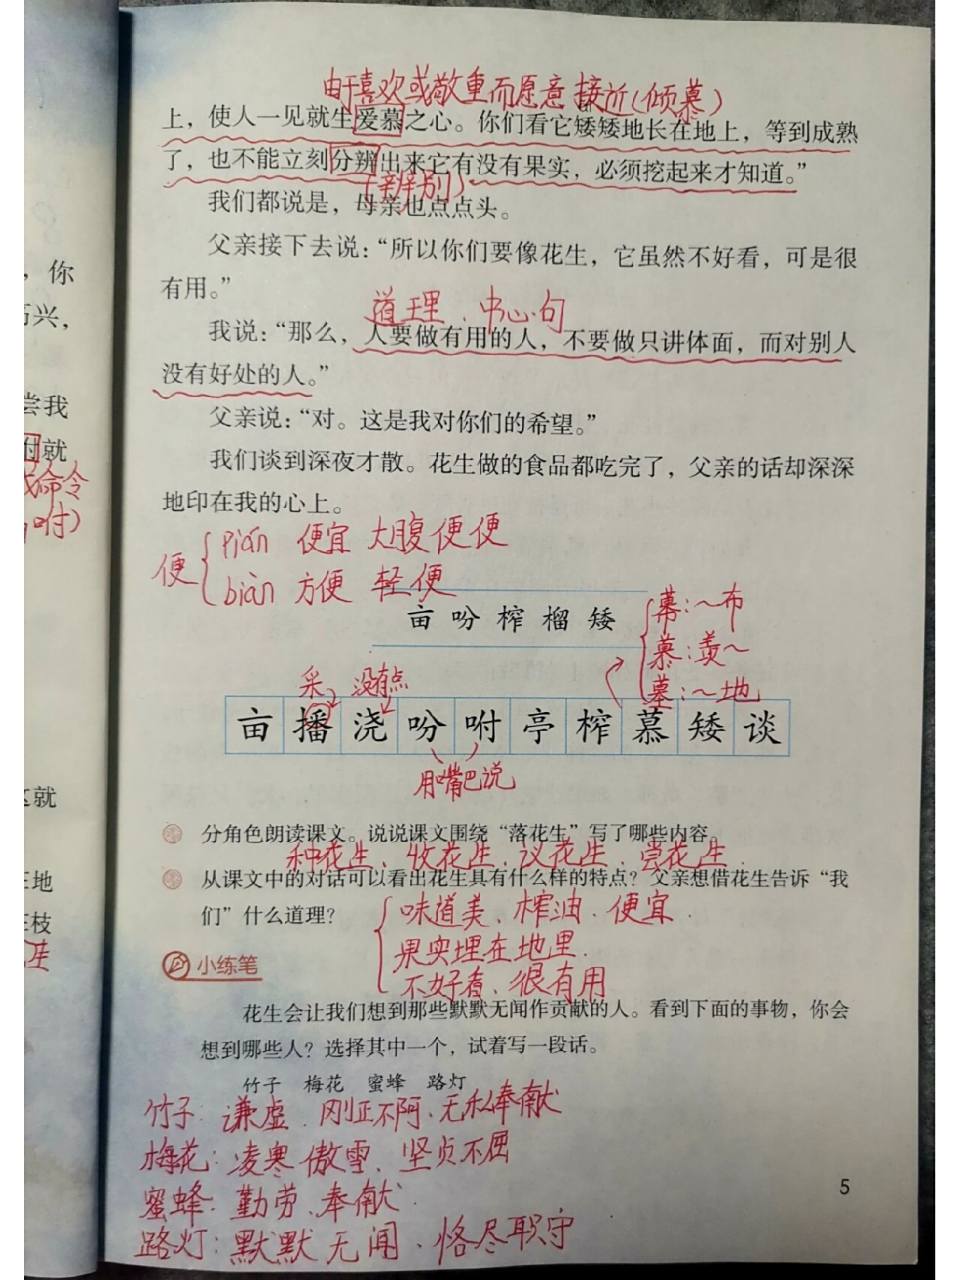 由于喜欢或敬重而愿意接近(倾慕)
上，使人一见就生爱慕之心。你们看它矮矮地长在地上，等到成熟
了，也不能立刻分辨出来它有没有果实，必须挖起来才知道。”
(辨别)
我们都说是，母亲也点点头。
父亲接下去说：“所以你们要像花生，它虽然不好看，可是很
有用。”
道理、中心句
我说：“那么，人要做有用的人，不要做只讲体面，而对别人
没有好处的人。”
父亲说：“对。这是我对你们的希望。”
我们谈到深夜才散。花生做的食品都吃完了，父亲的话却深深
地印在我的心上。
便 pián 便宜 大腹便便
biàn 方便 轻便
亩 吩 榨 榴 矮
幕:～布
慕:羡～
墓:～地
采 没有点
亩 播 浇 吩 咐 亭 榨 慕 矮 谈
用嘴巴说
分角色朗读课文。说说课文围绕“落花生”写了哪些内容。
种花生、收花生、议花生、尝花生
从课文中的对话可以看出花生具有什么样的特点？父亲想借花生告诉“我
们”什么道理？
味道美、榨油、便宜
果实埋在地里
不好看、很有用
小练笔
花生会让我们想到那些默默无闻作贡献的人。看到下面的事物，你会
想到哪些人？选择其中一个，试着写一段话。
竹子 梅花 蜜蜂 路灯
竹子：谦虚、刚正不阿、无私奉献
梅花：凌寒傲雪、坚贞不屈
蜜蜂：勤劳、奉献
路灯：默默无闻、恪尽职守
5
，你
兴，
尝我
咐就
命令
咐)
这就
地
枝